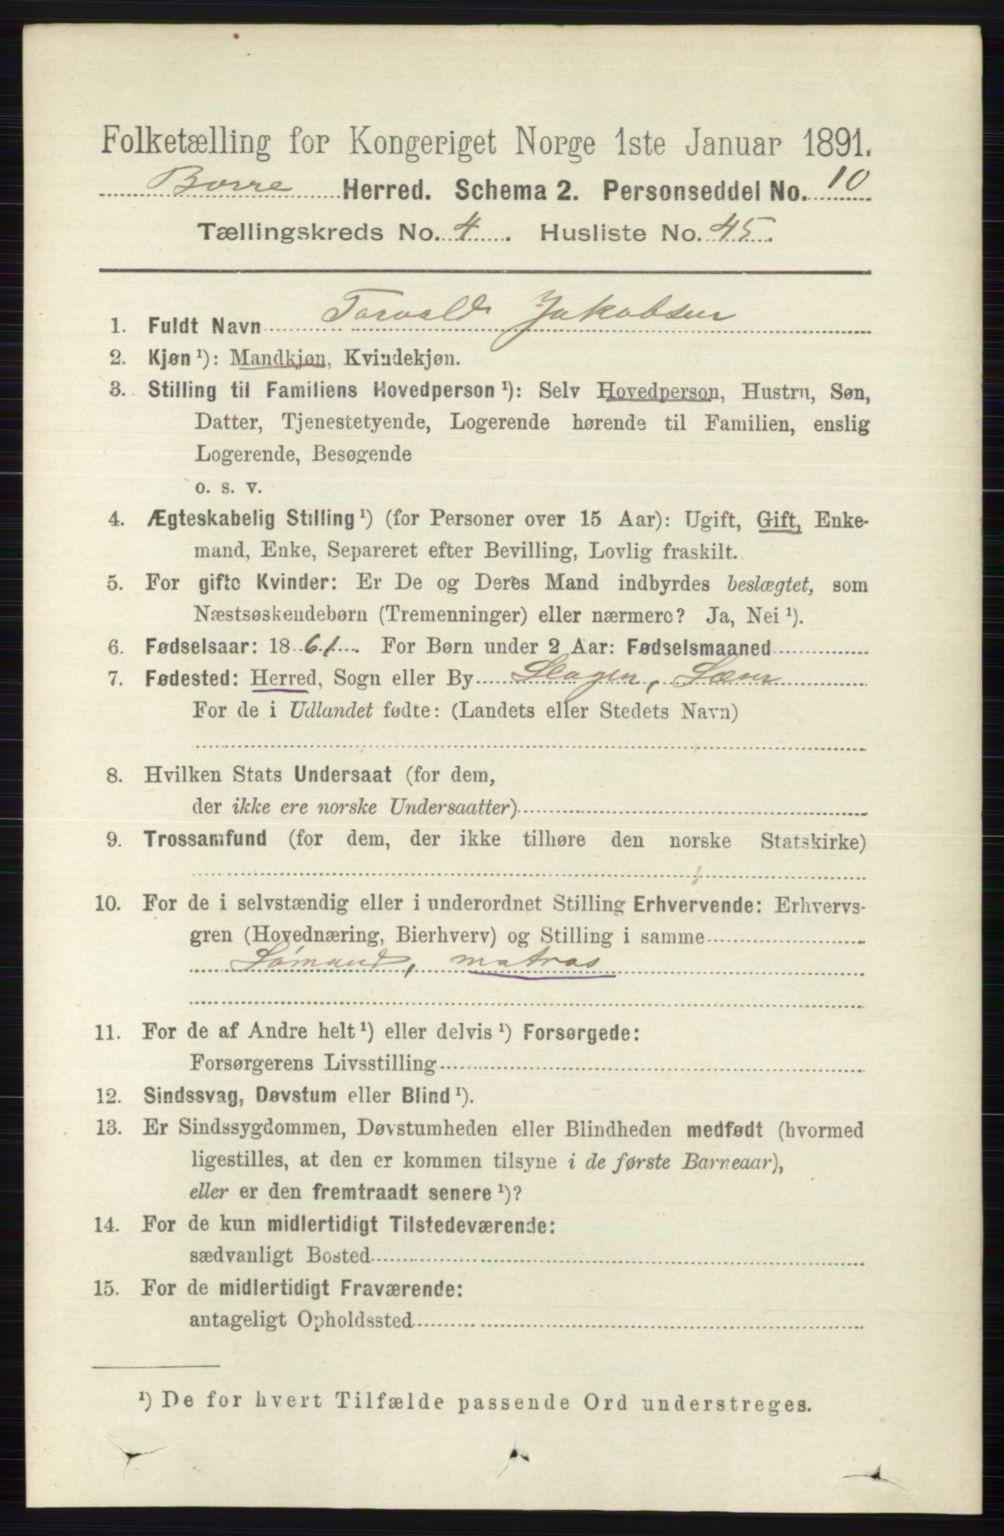 Folketælling for Kongeriget Norge 1ste Januar 1891.
Borre Herred. Schema 2. Personseddel No. 10
Tællingskreds No. 4. Husliste No. 45.
1. Fuldt Navn Torvald Jakobsen
2. Kjøn ¹): Mandkjøn, Kvindekjøn.
3. Stilling til Familiens Hovedperson ¹): Selv Hovedperson, Hustru, Søn,
Datter, Tjenestetyende, Logerende hørende til Familien, enslig
Logerende, Besøgende
o. s. v.
4. Ægteskabelig Stilling ¹) (for Personer over 15 Aar): Ugift, Gift, Enke-
mand, Enke, Separeret efter Bevilling, Lovlig fraskilt.
5. For gifte Kvinder: Er De og Deres Mand indbyrdes beslægtet, som
Næstsøskendebørn (Tremenninger) eller nærmere? Ja, Nei ¹).
6. Fødselsaar: 1861. For Børn under 2 Aar: Fødselsmaaned
7. Fødested: Herred, Sogn eller By Slagen, Sæm
For de i Udlandet fødte: (Landets eller Stedets Navn)
8. Hvilken Stats Undersaat (for dem,
der ikke ere norske Undersaatter)
9. Trossamfund (for dem, der ikke tilhøre den norske Statskirke)
10. For de i selvstændig eller i underordnet Stilling Erhvervende: Erhvervs-
gren (Hovednæring, Bierhverv) og Stilling i samme
Sømand, matros
11. For de af Andre helt ¹) eller delvis ¹) Forsørgede:
Forsørgerens Livsstilling
12. Sindssvag, Døvstum eller Blind ¹).
13. Er Sindssygdommen, Døvstumheden eller Blindheden medfødt (hvormed
ligestilles, at den er kommen tilsyne i de første Barneaar),
eller er den fremtraadt senere ¹)?
14. For de kun midlertidigt Tilstedeværende:
sædvanligt Bosted
15. For de midlertidigt Fraværende:
antageligt Opholdssted
¹) De for hvert Tilfælde passende Ord understreges.